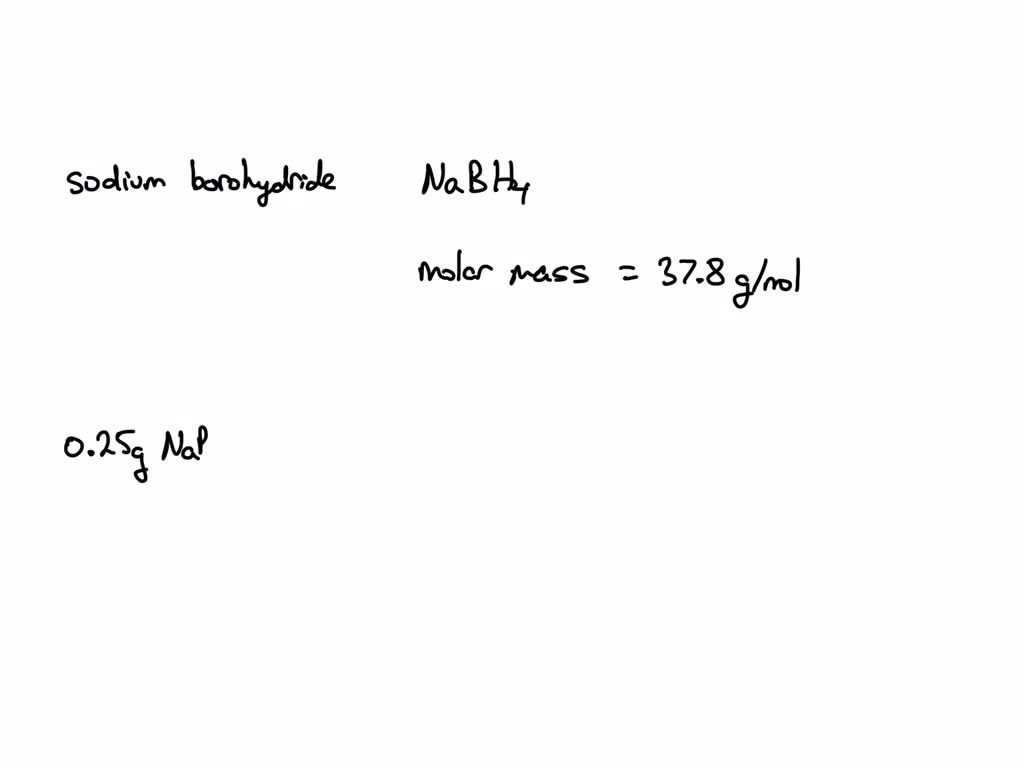 sodium borohydride NaBH4
molar mass = 37.8 g/mol
0.25g NaP